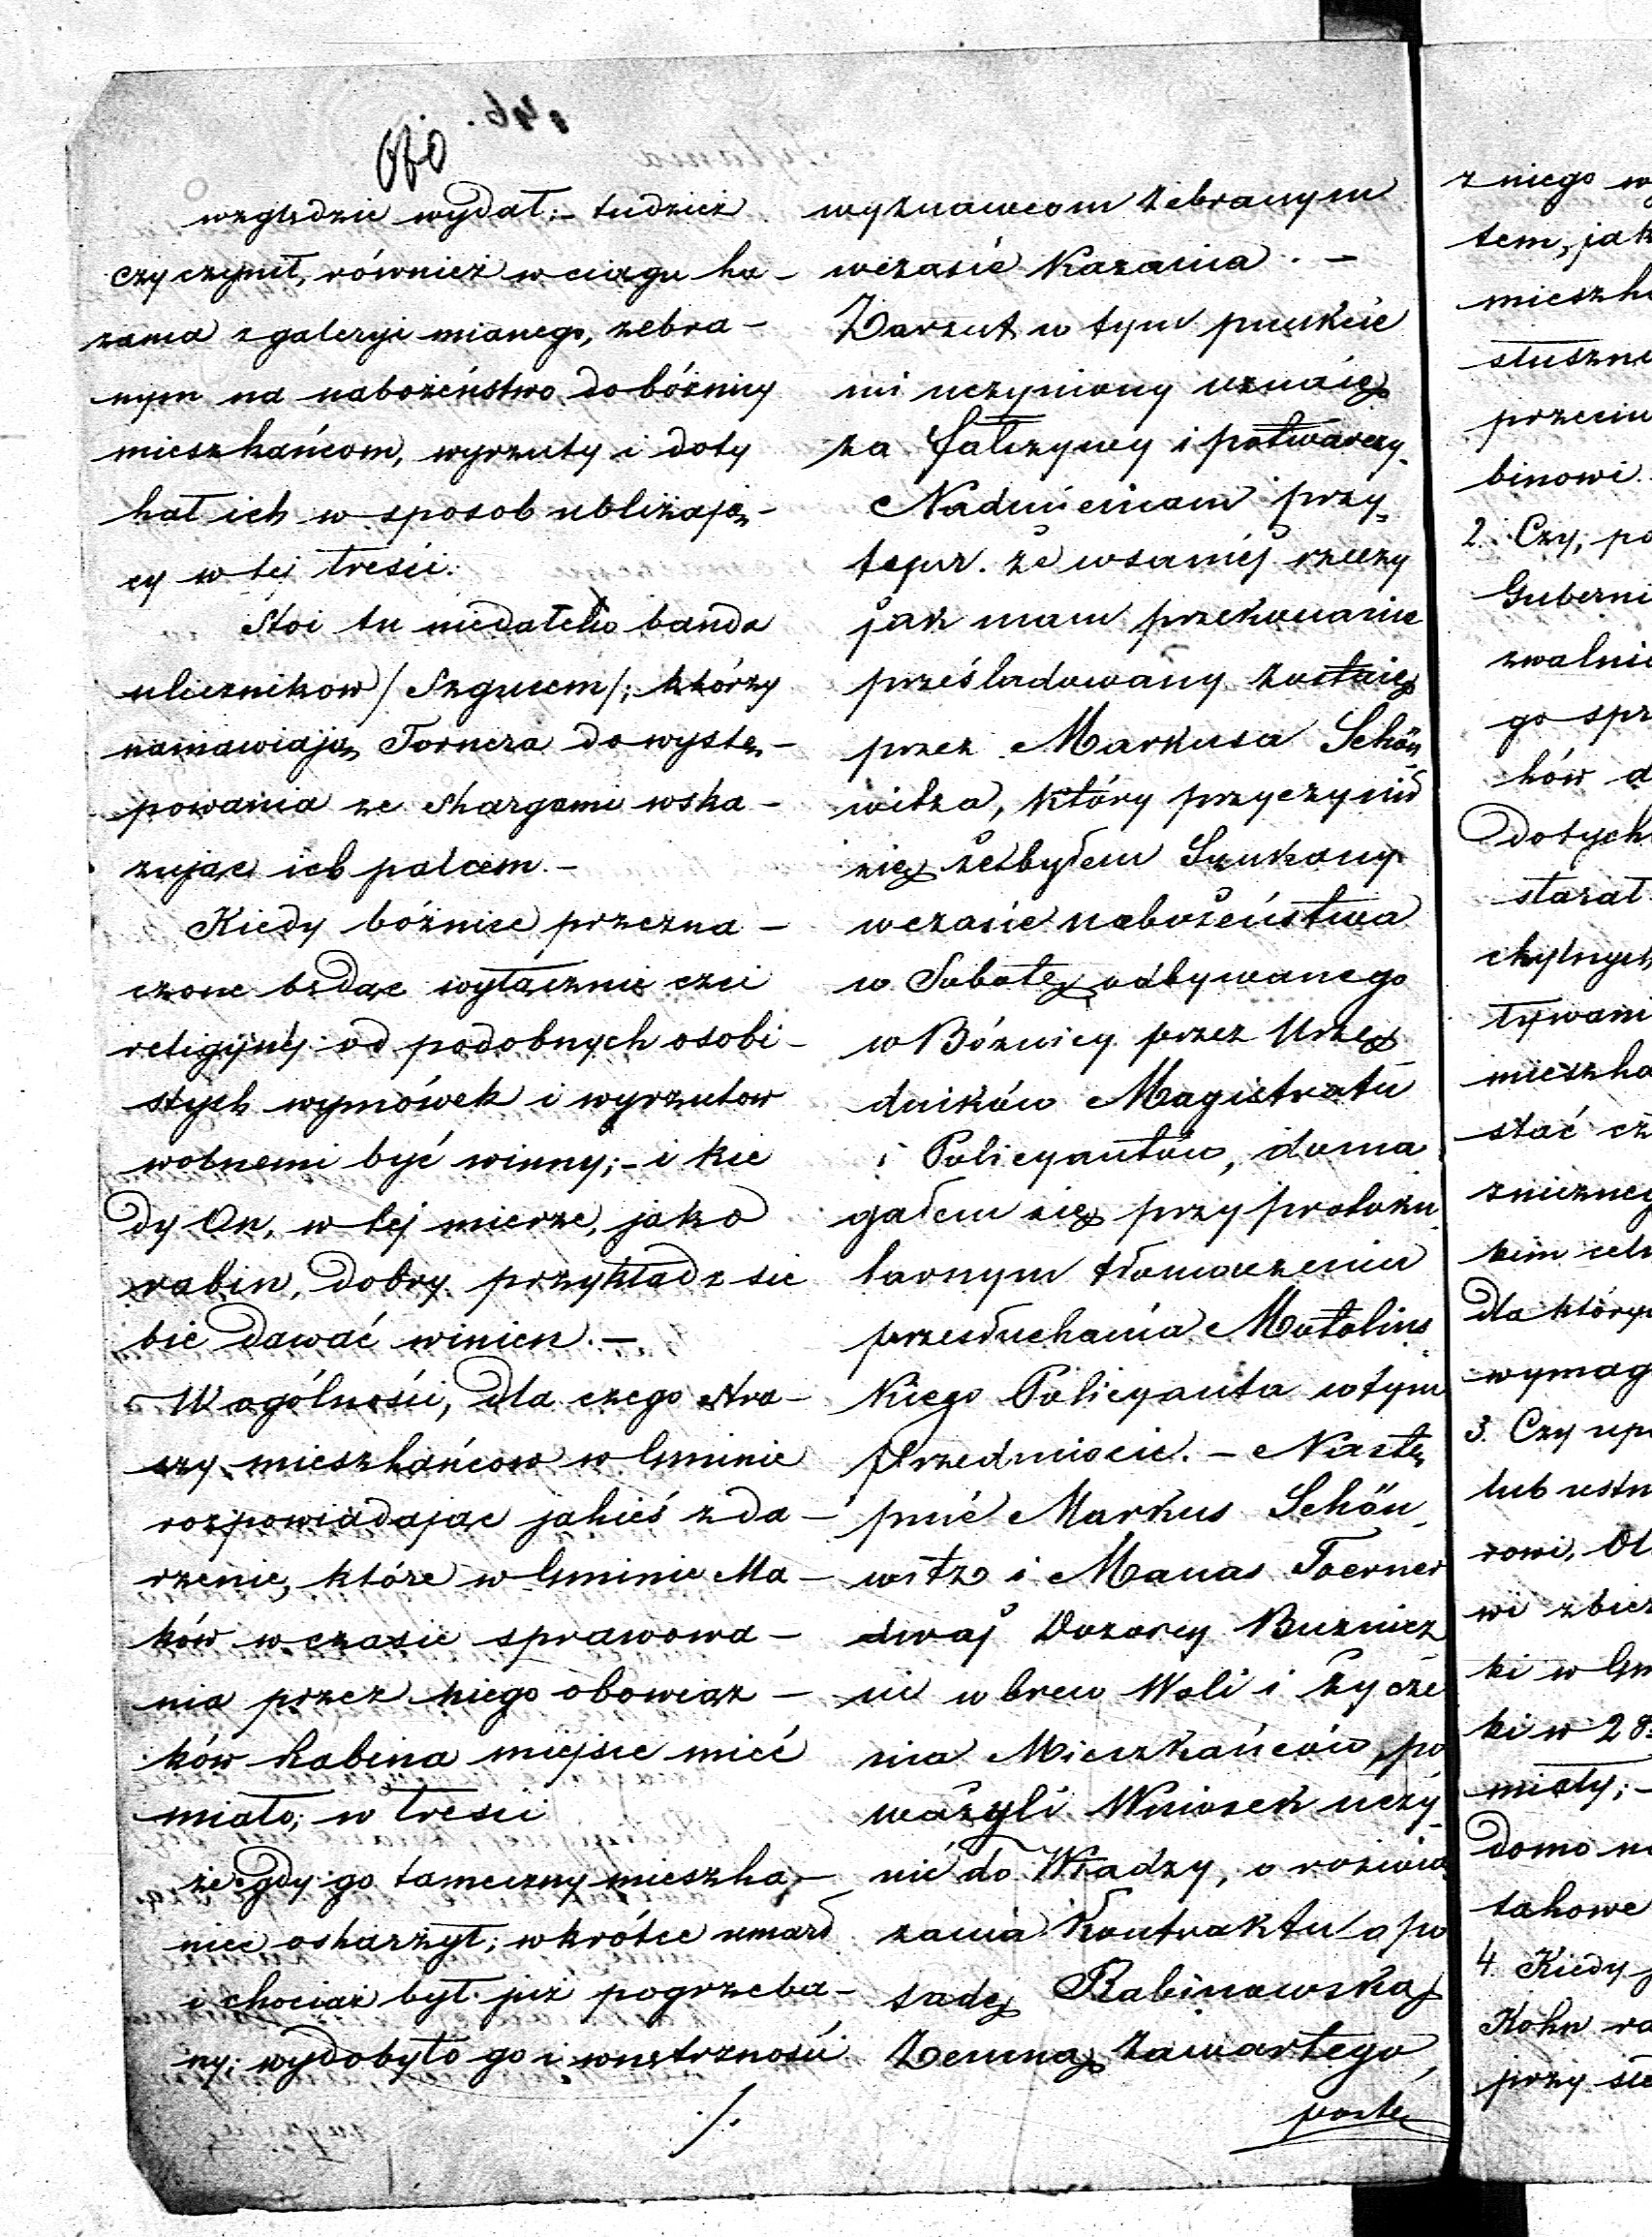 względzie wydał;- tudzież
czy czynił, również w ciągu ka-
zania z galeryi mianego, zebra-
nym na nabożeństwo do bóżnicy
mieszkańcom, wyrzuty i doty
kał ich w sposob ubliżają-
cy w tej treści:
Stoi tu niedaleko banda
ulicznikow / Szgucem /; którzy
namawiają Tornera do wystę-
powania ze skargami wska-
zując ich palcem.-
Kiedy bóżnice przezna-
czone będąc wyłącznie czci
religijnéj od podobnych osobi-
stych wymówek i wyrzutow
wolnemi być winny;- i kie
dy On, w tej mierze, jako
rabin, dobry przykład z sie
bie dawać winien.-
W ogólności, dla czego stra-
szy mieszkańcow w Gminie
rozpowiadając jakieś zda-
rzenie, które w Gminie Ma-
ków w czasie sprawowa-
nia przez niego obowiąz-
ków Rabina miejsce mieć
miało; w treści
że gdy go tameczny mieszka-
niec oskarżył; wkrótce umarł
i chociaż był już pogrzeba-
ny; wydobyło go i wnętrzności
./.
wyznawcom zebranym
wczasie Kazania.-
Zarzut w tym punkcie
mi uczyniony uznaię
za fałszywy i potwarczy.
Nadmieniam przy
tem. że wsaméj rzeczy
jak mam przekonanie
prześladowany zostaię
przez Markusa Schön
witza, który przyczynił
się żebyłem Szukany
wczasie nabożeństwa
w Sobotę odbywanego
w Bóżnicy przez Urzę
dników Magistratu
i Policyantów, doma
gałem się przy protoku
larnym tłomaczeniu
przesłuchania Motolins
kiego Policyanta wtym
przedmiocie.- Nastę
pnie Markus Schön
witz i Manas Toerner
dwaj Dozorcy Bużnicz
ni wbrew Woli i życze
nia Mieszkańców, po
ważyli Wniosek uczy
nić do Władzy, o rozwią
zania Kontraktu o po
sadę Rabinowską
Zemną zawartego,
z niego
tem, jak
słuszne
przeciw
binowi.
2. Czy, po
Guberni
go
ków
starał
mieszka
stać
dla który
wymag
3. Czy
lub
rowi,
ki w
ki w 28
miały;-
domo
4. Kiedy
Kohn
przy